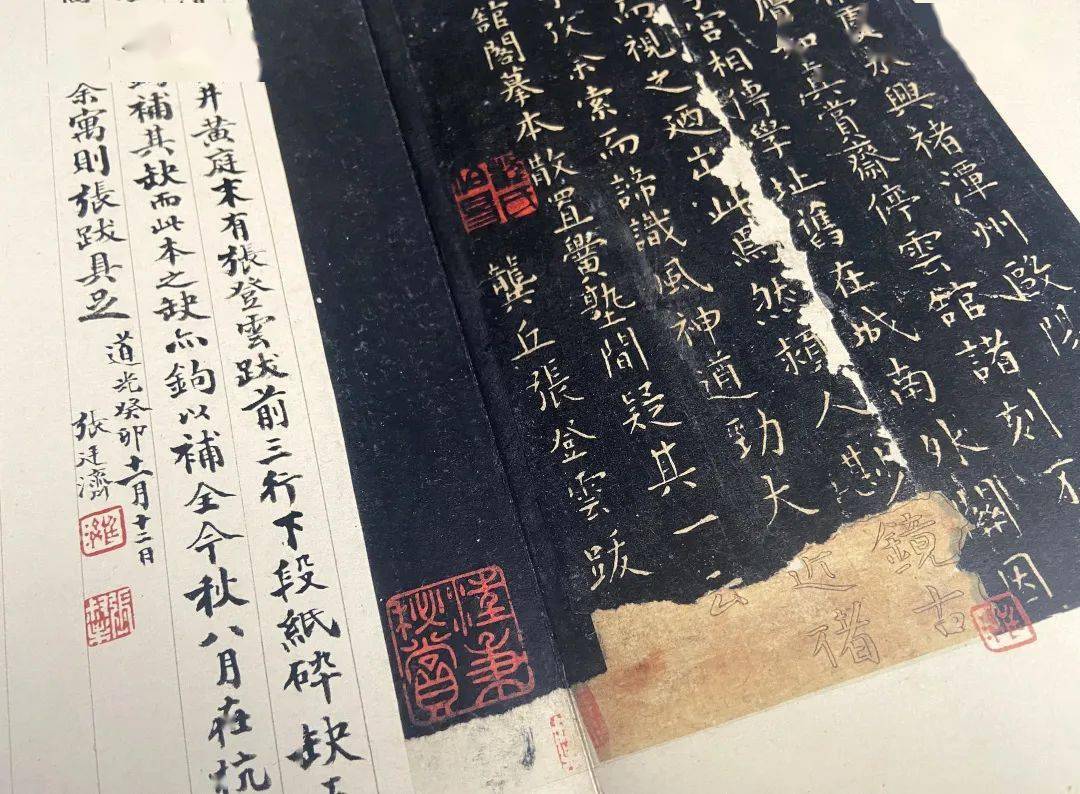 虞永興褚潭州歐陽
如真賞齋停雲館諸刻不
宮相傳學址舊在城南外關因
而視之廼出此焉然潁人甚少鏡古
次余索而諦識風神遒勁大近褚
館閣摹本散置黌塾間疑其一云
龔丘張登雲跋
井黃庭末有張登雲跋前三行下段紙碎缺
補其缺而此本之缺亦鉤以補全今秋八月在杭
余寓則張跋具足
道光癸卯十一月十二日
張廷濟